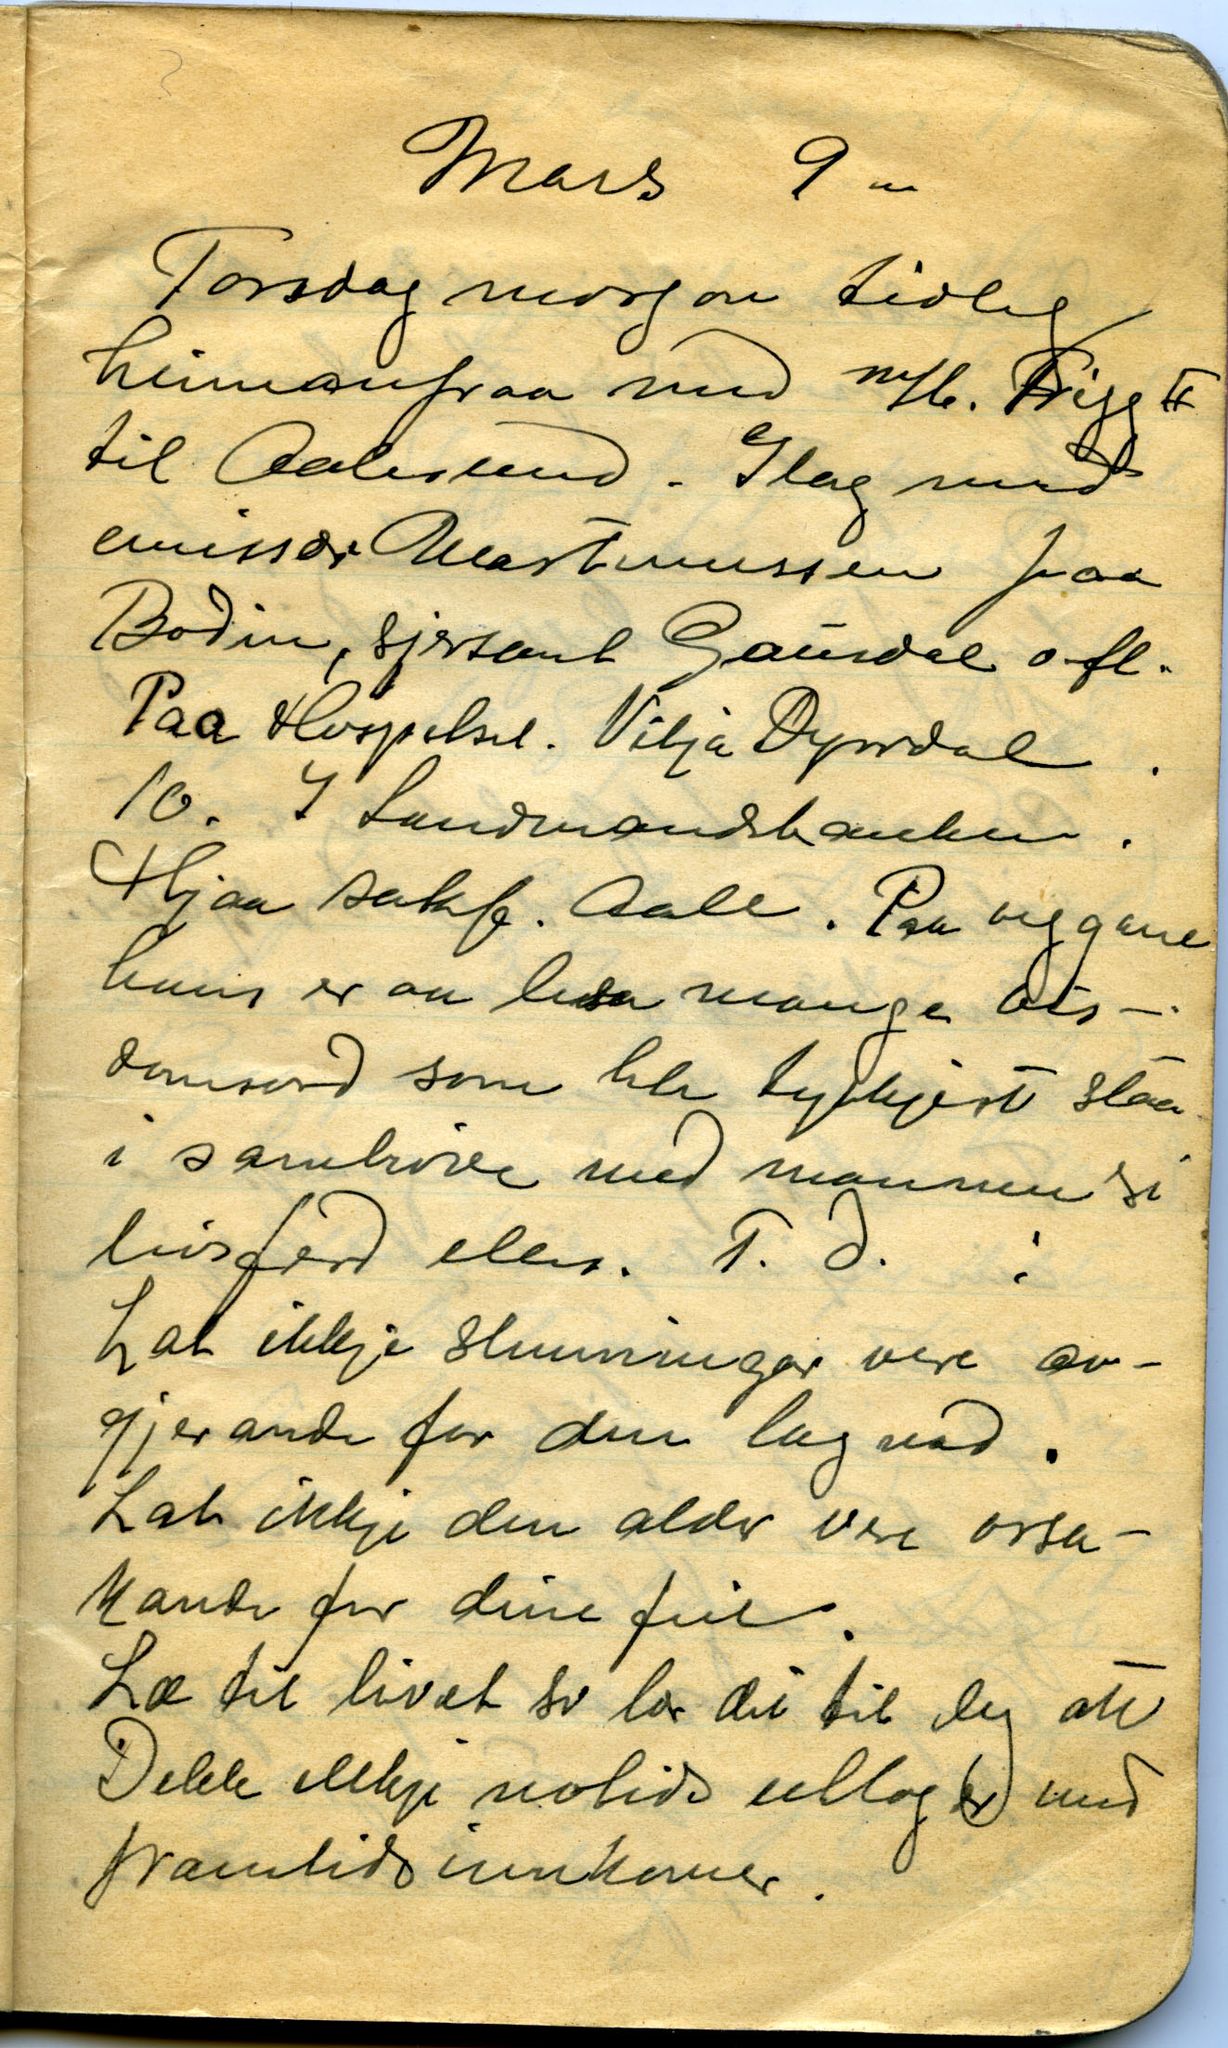 Mars 9 -
Torsdag morgon tidleg
heimanfraa med m/b. Frigg II
til Aalesund. Ilag med
emissær Martinussen fraa
Bodin, sjersant Gausdal o.fl.
Paa Hospitset. Vilja Dyrdal.
10. I Landmandsbanken.
Hjaa sakf. Aall. Paa veggene
hans er aa lesa mange vis-
domsord som lite tyskjest staa
i samhøve med mannen si
livsferd elles. T. D. :
Lat ikkje stemninger vere av-
gjerande for din lagnad.
Lat ikkje din alder vere orsa-
kande for dine feil.
Læ til livet so lær det til deg att
Dekk ikkje notids utlog(er) med
framtids innkomer.